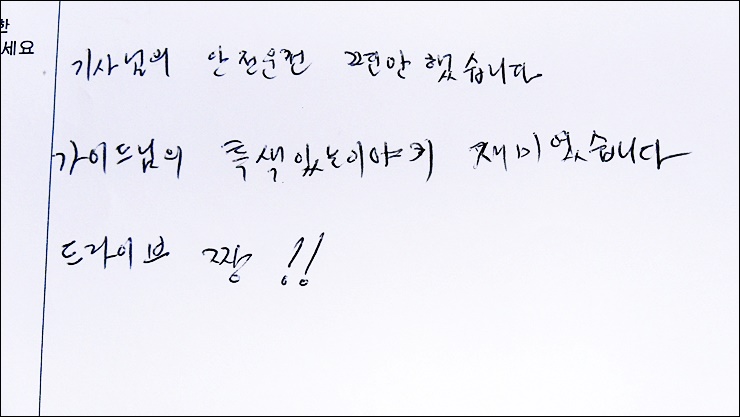 한
세요
기사님의 안전운전 편안했습니다
가이드님의 특색있는이야기 재미있었습니다
드라이브 짱 !!